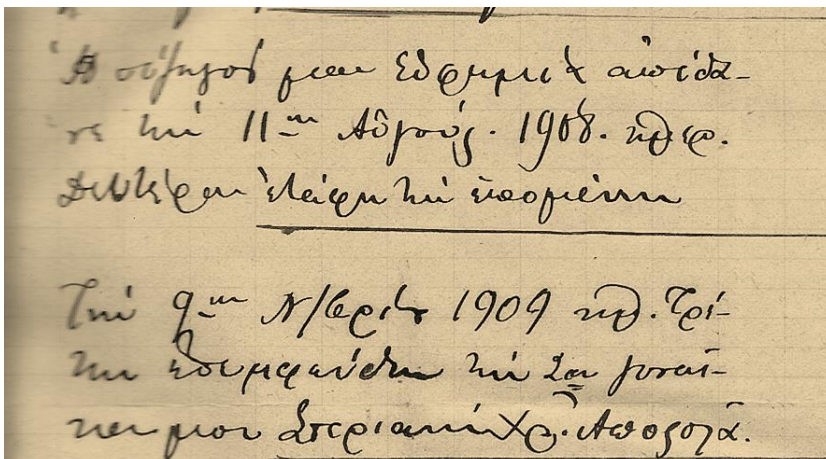 Ἡ σύζυγός μου Εὐφημία ἀπέθα-
νε τὴν 11ην Αὐγούσ. 1908. ἡμέρ.
Δευτέραν ἐτάφη τὴν ἑπομένην
Τὴν 9ην Ν/βρίου 1909 ἡμ. Τρί-
την ἐνυμφεύθην τὴν 2αν γυναῖ-
κα μου Στεριανὴν Χρ. Αποστολᾶ.